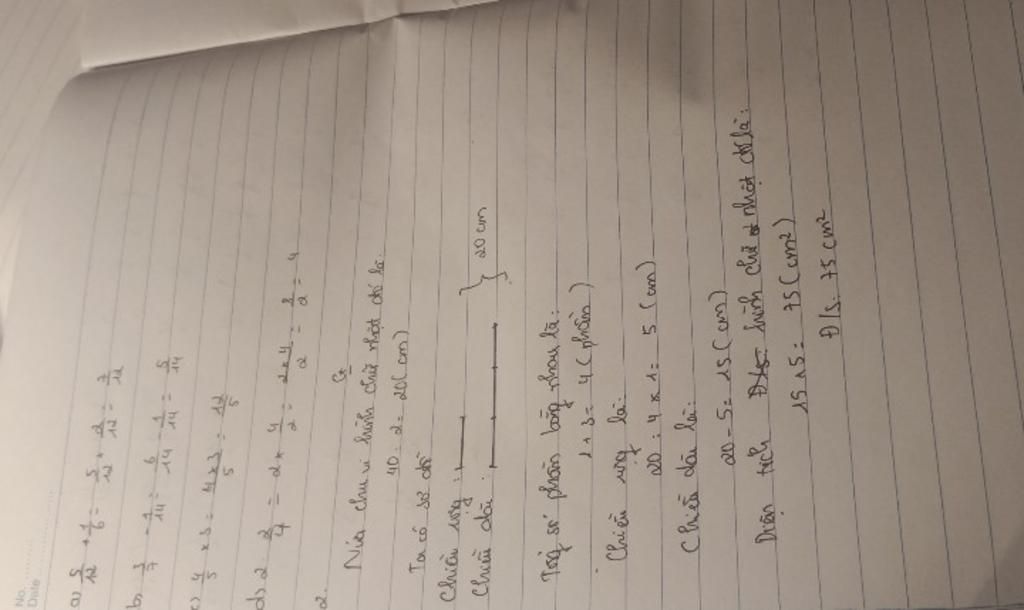 No.
Date
a) 5/12 + 1/6 = 5/12 + 2/12 = 7/12
b. 3/7 - 1/14 = 6/14 - 1/14 = 5/14
c) 4/5 x 3 = 4 x 3/5 = 12/5
d) 2 : 2/4 = 2 x 4/2 = 2 x 4/2 = 8/2 = 4
2. G
Nửa chu vi hình chữ nhật đó là:
40 : 2 = 20 (cm)
Ta có sơ đồ
Chiều rộng :
Chiều dài : } 20 cm
Tổng số phần bằng nhau là:
1 + 3 = 4 (phần)
Chiều rộng là:
20 : 4 x 1 = 5 (cm)
Chiều dài là:
20 - 5 = 15 (cm)
Diện tích hình chữ nhật đó là:
15 x 5 = 75 (cm²)
Đ/S: 75 cm²